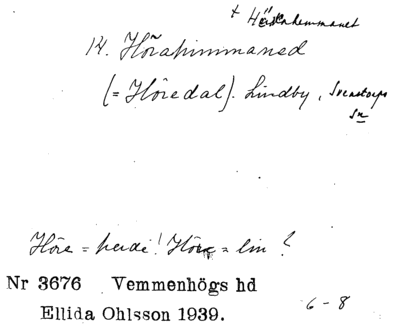 + Hörahemmanet
14. Hörahimmaned
(= Höredal). Lindby, Svenstorps
sn
Höre = herde! Höre = lin?
Nr 3676 Vemmenhögs hd
Ellida Ohlsson 1939.
6-8